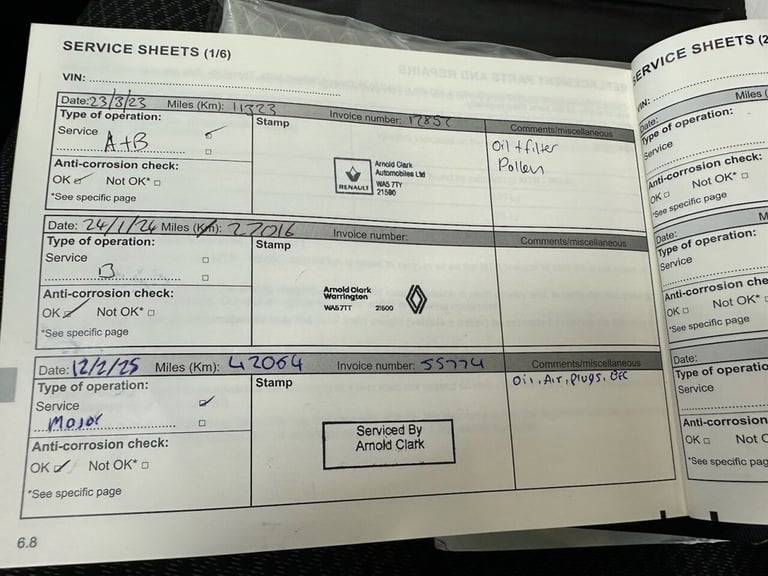 SERVICE SHEETS (1/6)
VIN:
Date: 23/3/23 Miles (Km): 11323 Invoice number: 17857 Comments/miscellaneous
Type of operation:
Service
A+B
Stamp
Oil + filter
Pollen
RENAULT
Arnold Clark
Automobiles Ltd
WA5 7TY
21500
Anti-corrosion check:
OK Not OK*
*See specific page
Date: 24/1/24 Miles (Km): 27016 Invoice number: Comments/miscellaneous
Type of operation:
Service
B
Stamp
Arnold Clark
Warrington
WA5 7TT 21500
Anti-corrosion check:
OK Not OK*
*See specific page
Date: 12/2/25 Miles (Km): 42064 Invoice number: 55774 Comments/miscellaneous
Type of operation:
Service
Major
Stamp
Oil, Air, Plugs, BFC
Serviced By
Arnold Clark
Anti-corrosion check:
OK Not OK*
*See specific page
6.8
SERVICE SHEETS (2
VIN:
Date: Miles (
Type of operation:
Service
Anti-corrosion check:
OK Not OK*
*See specific page
Date: M
Type of operation:
Service
Anti-corrosion che
OK Not OK*
*See specific page
Date:
Type of operation
Service
Anti-corrosion
OK Not O
*See specific pag